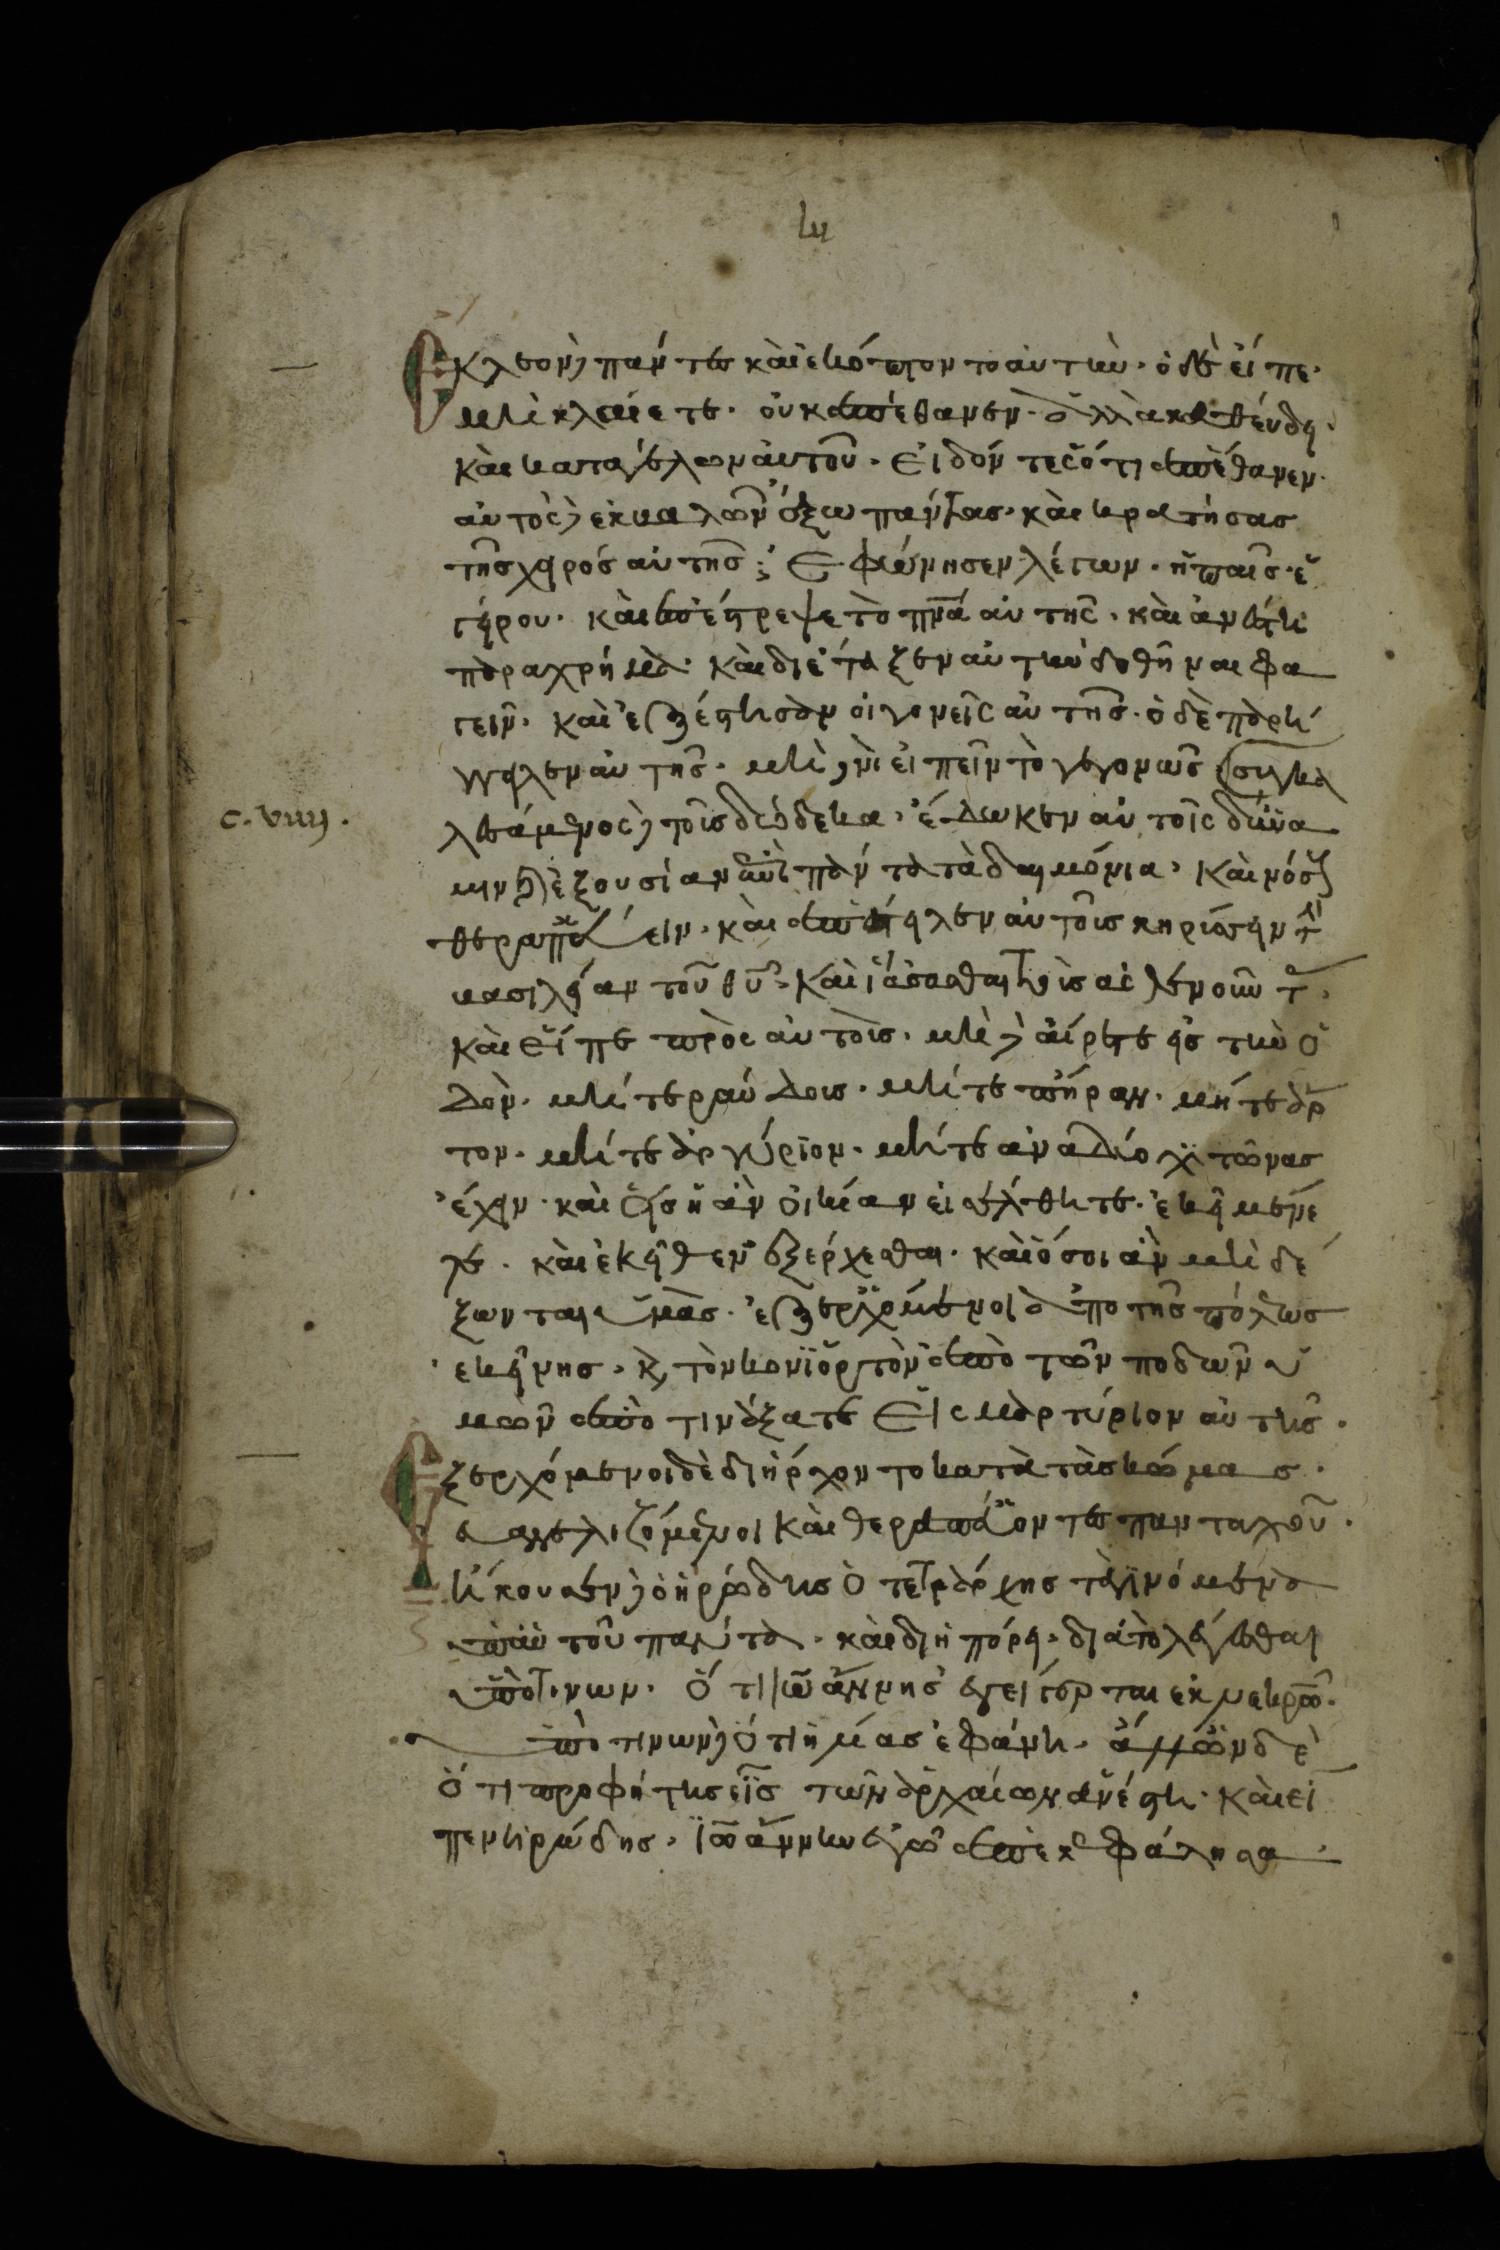 ἔκλεον πάντες καὶ ἐκόπτοντο αὐτὴν· ὁ δὲ εἶπε·
μὴ κλαίετε· οὐκ ἀπέθανεν· ἀλλὰ καθεύδει·
καὶ κατεγέλων αὐτοῦ· εἰδόντες ὅτι ἀπέθανεν·
αὐτὸς ἐκβαλὼν ἔξω πάντας· καὶ κρατήσας
τῆς χειρὸς αὐτῆς· ἐφώνησεν λέγων· ἡ παῖς ἐ
γείρου· καὶ ἐπέστρεψε τὸ πνα αὐτῆς· καὶ ἀνέστη
παραχρῆμα· καὶ διέταξεν αὐτὴν δοθῆναι φα
γεῖν· καὶ ἐξέστησαν οἱ γονεῖς αὐτῆς· ὁ δὲ παρή
γγειλεν αὐτῆς· μὴ εἰπεῖν τὸ γεγονὼς συγκα
c. viiij.
λεσάμενος τοῖς δώδεκα· ἔδωκεν αὐτοῖς δύνα
μιν καὶ ἐξουσίαν ἐπὶ πάντα τὰ δαιμόνια· καὶ νόσους
θεραπεύειν· καὶ ἀπέστειλεν αὐτοῖς κηρύσειν τὴν
βασιλείαν τοῦ θυ· καὶ ἰάσασθαι τοῖς ἀσθενοῦντας·
καὶ εἶπε πρὸς αὐτοῖς· μὴ αἴρετε εἰς τὴν ὁ
δόν· μήτε ράβδοις· μήτε πήραν· μήτε ἄρ
τον· μήτε ἀργύριον· μήτε ἀνὰ δύο χιτῶνας
ἔχειν· καὶ εἰς ἣ ἂν οἰκίαν εἰσέλθητε· ἐκεῖ μένε
τε· καὶ ἐκεῖθεν ἐξέρχεσθαι· καὶ ὅσοι ἂν μὴ δέ
ξωνται ὑμᾶς· ἐξερχόμενοι ἀπὸ τῆς πόλεως
ἐκείνης· κ, τὸν κονϊορτὸν ἀπὸ τῶν ποδῶν ὑ
μῶν ἀποτινάξατε εἰς μαρτύριον αὐτῆς·
ἐξερχόμενοι δὲ διήρχοντο κατὰ τὰς κώμας·
εὐαγγελιζόμενοι καὶ θεραπεύοντες πανταχοῦ·
ἤκουσεν ὁ ἡρώδης ὁ τετράρχης τὰ γινόμενα
ὑπ' αὐτοῦ πάντα· καὶ διηπόρει· διὰ τὸ λέγεσθαι
ὑπό τινων· ὅτι ἰωάννης ἐγείγερται ἐκ νεκρῶν·
ὑπό τινων ὅτι ἠλίας ἐφάνη· ἄλλων δὲ
ὅτι προφήτης εἷς τῶν ἀρχαίων ἀνέστη· καὶ εἶ
πεν ἡρώδης· ἰωάννην ἐγὼ ἀπεκεφάλησα·